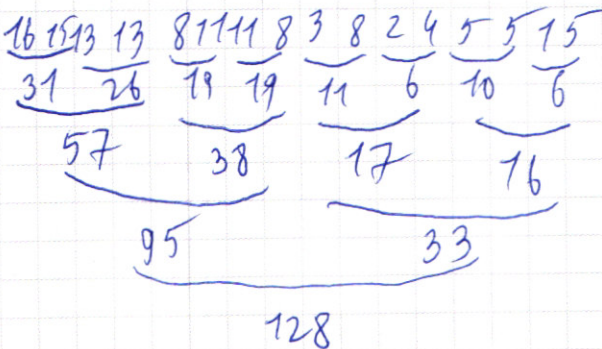 16 15 13 13 8 11 11 8 3 8 2 4 5 5 1 5
31 26 19 19 11 6 10 6
57 38 17 16
95 33
128